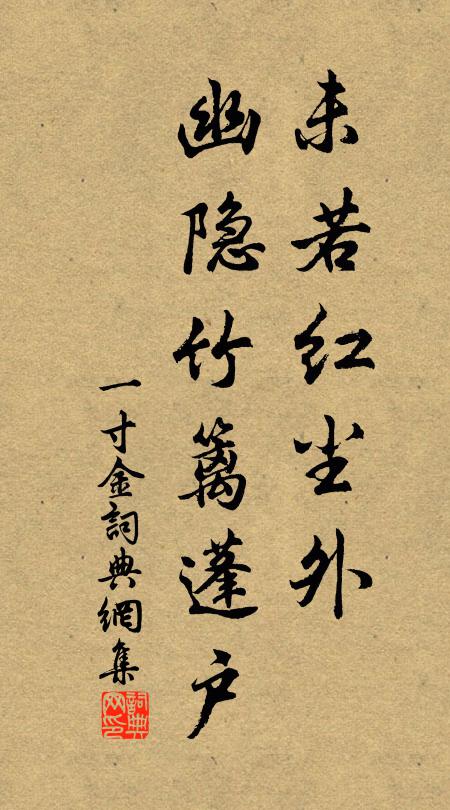 未若红尘外
幽隐竹篱蓬户
一寸金詞典網集
詞典网印